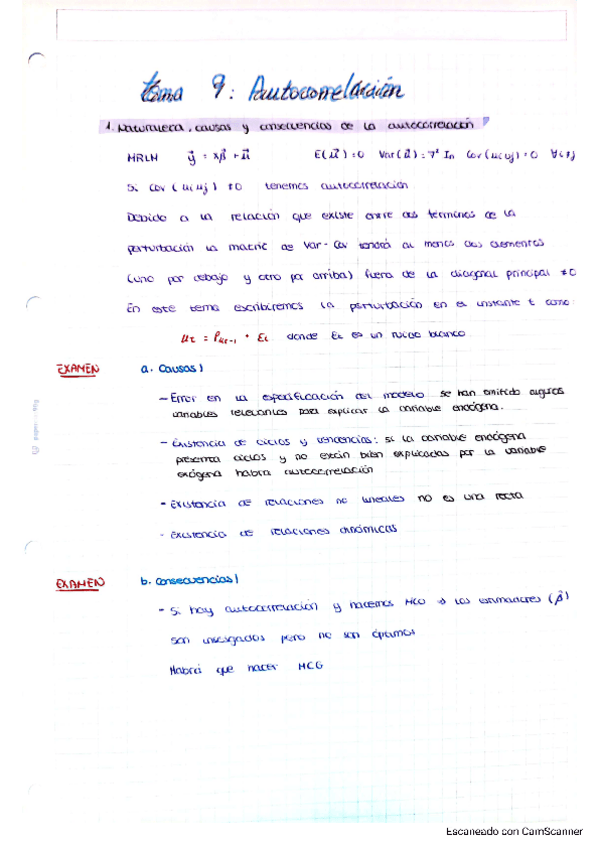 tema 9: Autocorrelación
1. Naturaleza, causas y consecuencias de la autocorrelación
MRLN y⃗ = xβ⃗ + u⃗ E(u⃗) = 0 Var(u⃗) = σ² In Cov(ui uj) = 0 ∀ i≠j
Si Cov (ui uj) ≠ 0 tenemos autocorrelación
Debido a la relación que existe entre dos términos de la
perturbación la matriz de Var-Cov tendrá al menos dos elementos
(uno por debajo y otro por arriba) fuera de la diagonal principal ≠ 0
En este tema escribiremos la perturbación en el instante t como:
donde Et es un ruido blanco
EXAMEN a. Causas
- Error en la especificación del modelo se han omitido algunas
variables relevantes para explicar la variable endógena.
- Existencia de ciclos y tendencias: si la variable endógena
presenta ciclos y no están bien explicadas por la variable
exógena habrá autocorrelación
- Existencia de relaciones no lineales no es una recta
- Existencia de relaciones dinámicas
EXAMEN b. Consecuencias
- Si hay autocorrelación y hacemos MCO → los estimadores (β⃗)
son insesgados pero no son óptimos
Habrá que hacer MCG
Escaneado con CamScanner